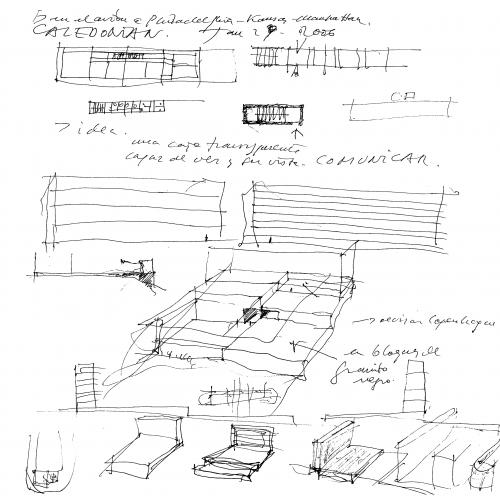 en el avión a Philadelphia - Kansas - Manhattan.
CALEDONIAN. Jan 29. 2006
> idea.
una caja transparente
capaz de ver y ser vista. COMUNICAR.
Copenhagen
en bloques de
granito
negro.